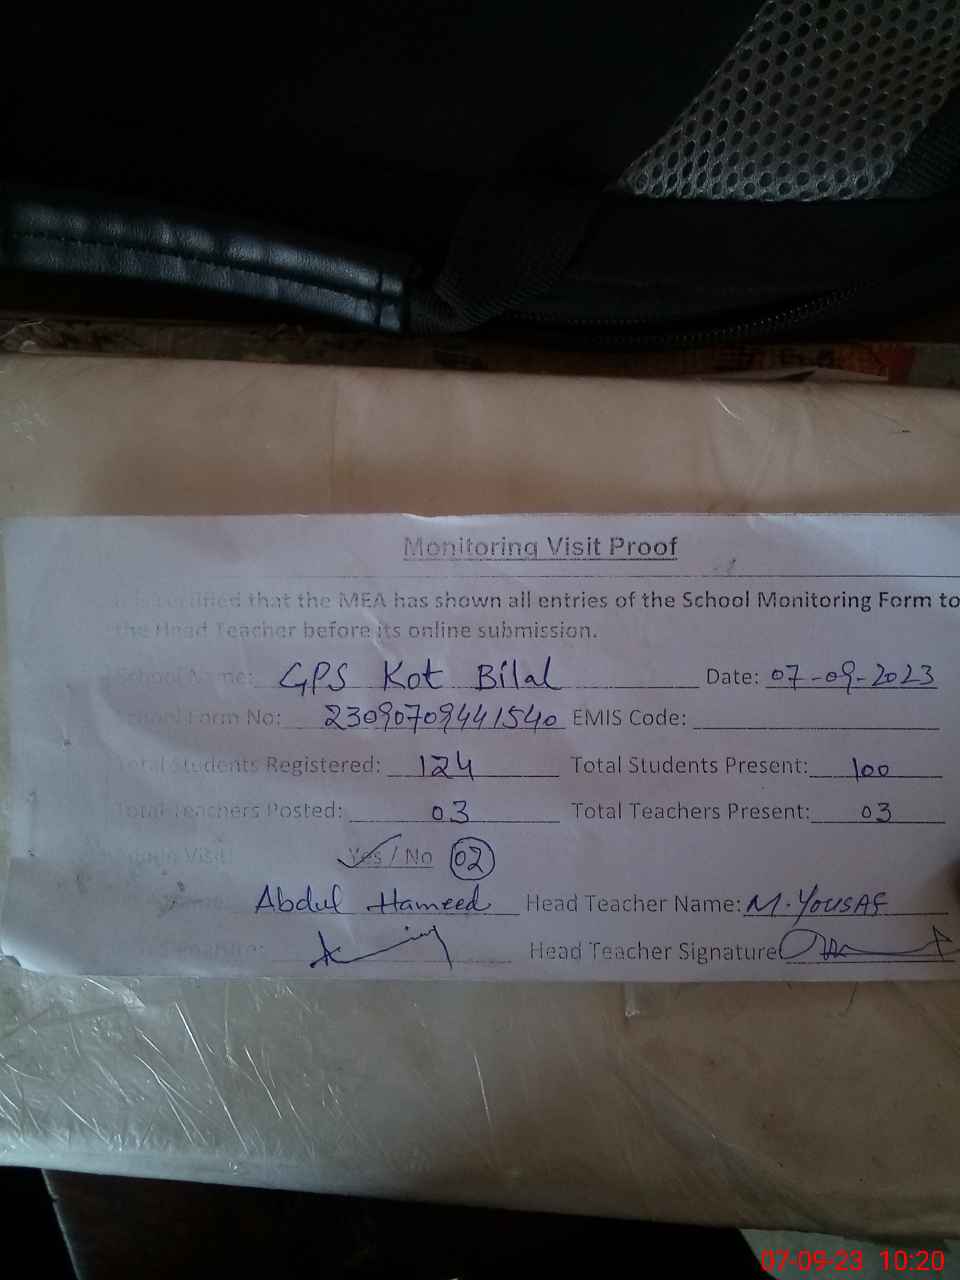 Monitoring Visit Proof
certified that the MEA has shown all entries of the School Monitoring Form to
the Head Teacher before its online submission.
School Name: GPS Kot Bilal Date: 07-09-2023
School Form No: 23090709441540 EMIS Code:
Total Students Registered: 124 Total Students Present: 100
Total Teachers Posted: 03 Total Teachers Present: 03
Visit: Yes / No 02
Abdul Hameed Head Teacher Name: M. YOUSAF
Head Teacher Signature
07-09-23 10:20